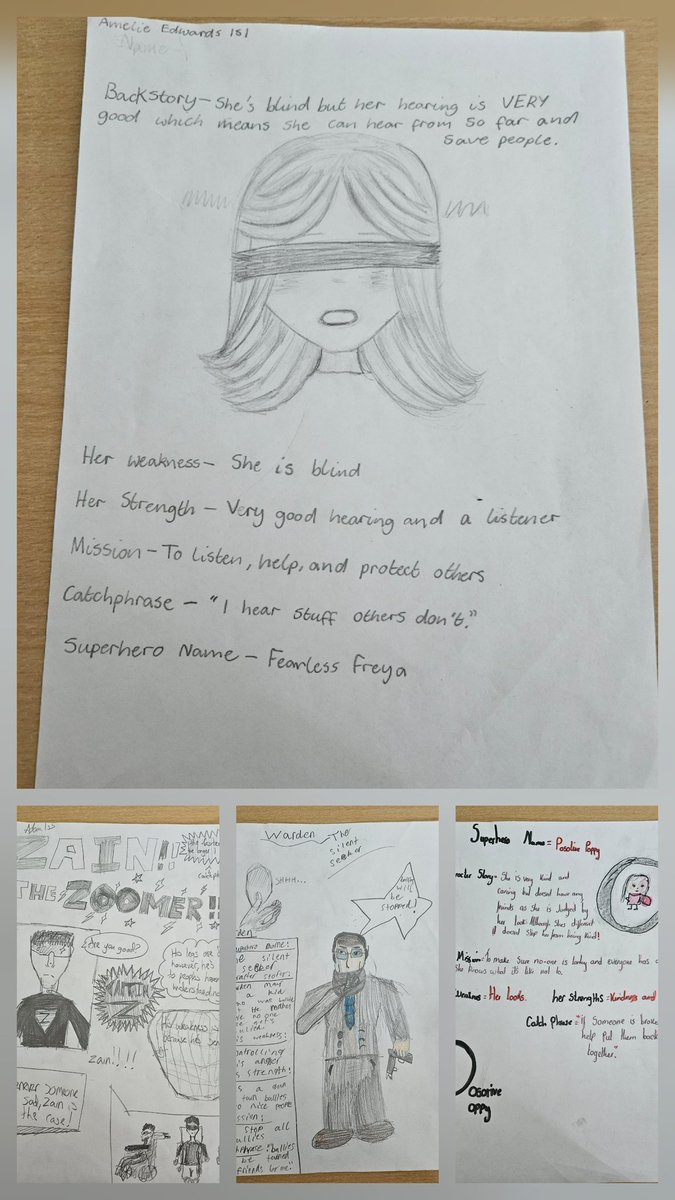 Amelie Edwards 1S1
Name-
Backstory- She's blind but her hearing is VERY
good which means she can hear from so far and
save people.
Her weakness- She is blind
Her Strength - Very good hearing and a listener
Mission-To listen, help, and protect others
Catchphrase - "I hear stuff others don't."
Superhero Name - Fearless Freya
ZAIN!!
THE ZOOMER!!
Are you good?
His legs are
however, he's
to peoples
KAPTIN
Z
His weakness is
because he's
Zain!!!!
someone
sad, Zain is
the case!
Warden - The
silent
seeker
SHHH...
bullies
will
be
stopped!
name:
silent
seeker
a kid
who was
no one
weakness:
controlling
his anger
strength:
is a
turn bullies
to nice people
stop all
bullies
bullies
be turned
friends
Superhero Name = Posotive Poppy
Story- She is very kind and
caring but doesnt have any
friends as she is Judged by
her look. Although shes different
it doesnt stop her from being kind!
Mission: To make sure no-one is lonely and everyone has
She knows what it's like not to.
Her looks. her strengths = Kindness and
Catch Phrase = "if Someone is
help Put them back
together."
osotive
oppy